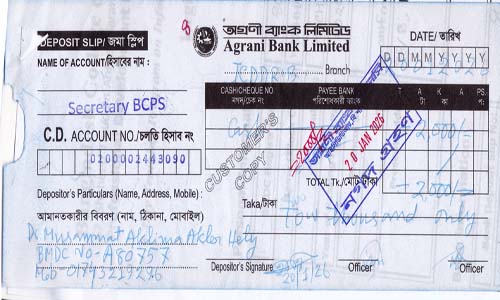 DEPOSIT SLIP/ জমা স্লিপ
অগ্রণী ব্যাংক লিমিটেড
Agrani Bank Limited
DATE/ তারিখ
D D M M Y Y Y Y
NAME OF ACCOUNT/হিসাবের নাম :
ICDDR,B Branch
Secretary BCPS
CASH/CHEQUE NO
নগদ/চেক নং
PAYEE BANK
পরিশোধকারী ব্যাংক
T A K A
টাকা
PS.
প.
Cash
2000/-
C.D. ACCOUNT NO./চলতি হিসাব নং
0200002443090
CUSTOMER'S COPY
20 JAN 2026
নগদ গ্রহণ
TOTAL TK./মোট টাকা
2000/-
Depositor's Particulars (Name, Address, Mobile) :
আমানতকারীর বিবরণ (নাম, ঠিকানা, মোবাইল)
Taka/টাকা
Tow thousand only
Dr Musammat Aklima Akter Hely
BMDC No-A80757
Mob-01745219226
Depositor's Signature
20/1/26
Officer
Officer